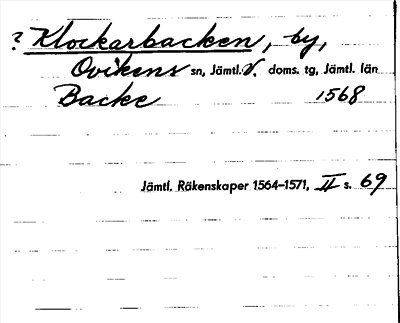 ? Klockarbacken, by,
Ovikens sn, Jämtl. V. doms. tg, Jämtl. län
Backe 1568
Jämtl. Räkenskaper 1564-1571, II s. 69